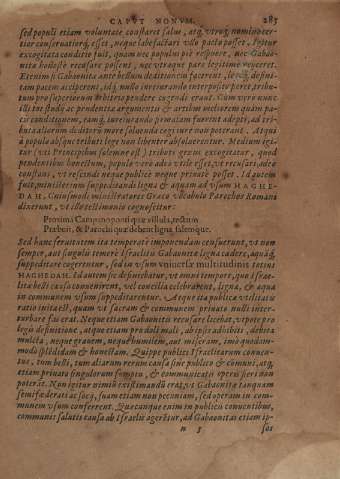 CAPVT NONVM. 285
sed populi etiam voluntate constaret salus, atq; vtrinq; nomine cer-
tior conservatioq; esset, neque labefactari vllo pacto posset. Igitur
excogitata conditio fuit, quam nec populus piè respuere, nec Gabao-
nitæ honestè recusare possent, nec vtraque pars legitimè vinceret.
Etenim si Gabaonitæ ante bellum deditionem facerent, lege defini-
tam pacem acciperent, id nullo iureiurando interposito
tum pro superiorum arbitrio pendere cogendi erant. Cum verò nunc
illi tuc studio ac prudentia argumentis & artibus vsi
cùm conditionem, eamq; iureiurando firmatam fuerint adepti, ad tri-
buta aliorum deditorum more soluenda cogi iure non poterant. Atqui
à populo absque tributi lege non libenter absoluerentur. Medium igi-
tur (vti Principibus solemne est) tributi genus excogitatur, quod
pendentibus honestum, populo vero adeo vtile esset, vt recusari, adeo
constans, vt rescindi neque publicè neque privatè posset. Id autem
fuit, ministerium suppeditandi ligna & aquam ad vsum MAGHE-
DAH. Cuiusmodi ministratores Græco vocabulo Parochos Romani
dixerunt, vt illo testimonio cognoscitur:
Proxima Campano ponti quæ villula, tectum
Præbuit, & Parochi quæ debent ligna, salemque.
Sed hanc seruitutem ita temperatè imponendam censuerunt, vt non
semper, aut singulis temerè Israëlitis Gabaonitæ ligna cædere, aquāq;
suppeditare cogerentur, sed in vsum vniuersæ multitudinis totius
MAGHEDAH. Id autem sic definiebatur, vt omni tempore, quo Israë-
litæ belli causa conuenirent, vel concilia celebrarent, ligna, & aqua
in communem vsum suppeditarentur. Atque ita publica vtilitatis
ratio inita est, quam vt sacram & communem priuata nulli inter-
turbare fas erat. Neque etiam Gabaonitis recusare licebat, vtpote pro
legis definitione, atque etiam pro doli mali, ab ipsis adhibiti, debita
mulcta, neque grauem, neque humilem, aut miseram, imò quodam-
modo splēdidam & honestam. Quippe publici Israëlitarum conuen-
tus, tum belli, tum aliarum rerum causa siue publico & communi, atq;
etiam priuato singulorum sumptu, & communicatis operis fieri non
poterāt. Non igitur nimiū existimandū erat, vt Gabaonitæ tanquam
semifœderati ac socij, suam etiam non pecuniam, sed operam in com-
munem vsum conferrent. Quacunque enim in publicis conuentibus,
communis salutis causa ab Israëlis ageretur, ad Gabaonitas etiam ip-
n 3 sos